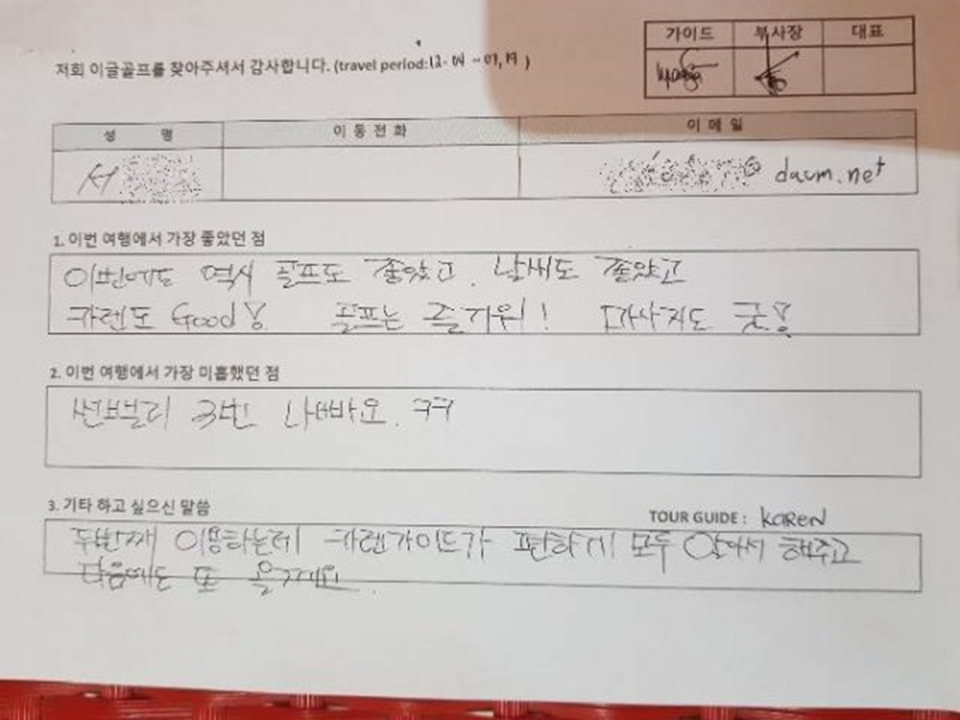 가이드 부사장 대표
저희 이글골프를 찾아주셔서 감사합니다. (travel period: )
성 명 이동전화 이메일
서 @ daum.net
1. 이번 여행에서 가장 좋았던 점
이번에도 역시 골프도 좋았고, 날씨도 좋았고
카렌도 Good! 골프는 즐거워! 마사지도 굿!
2. 이번 여행에서 가장 미흡했던 점
썬밸리 3번 나빠요. ㅋㅋ
3. 기타 하고 싶으신 말씀
TOUR GUIDE : KAREN
두번째 이용하는데 카렌가이드가 편하게 모두 알아서 해주고
다음에도 또 올게요.